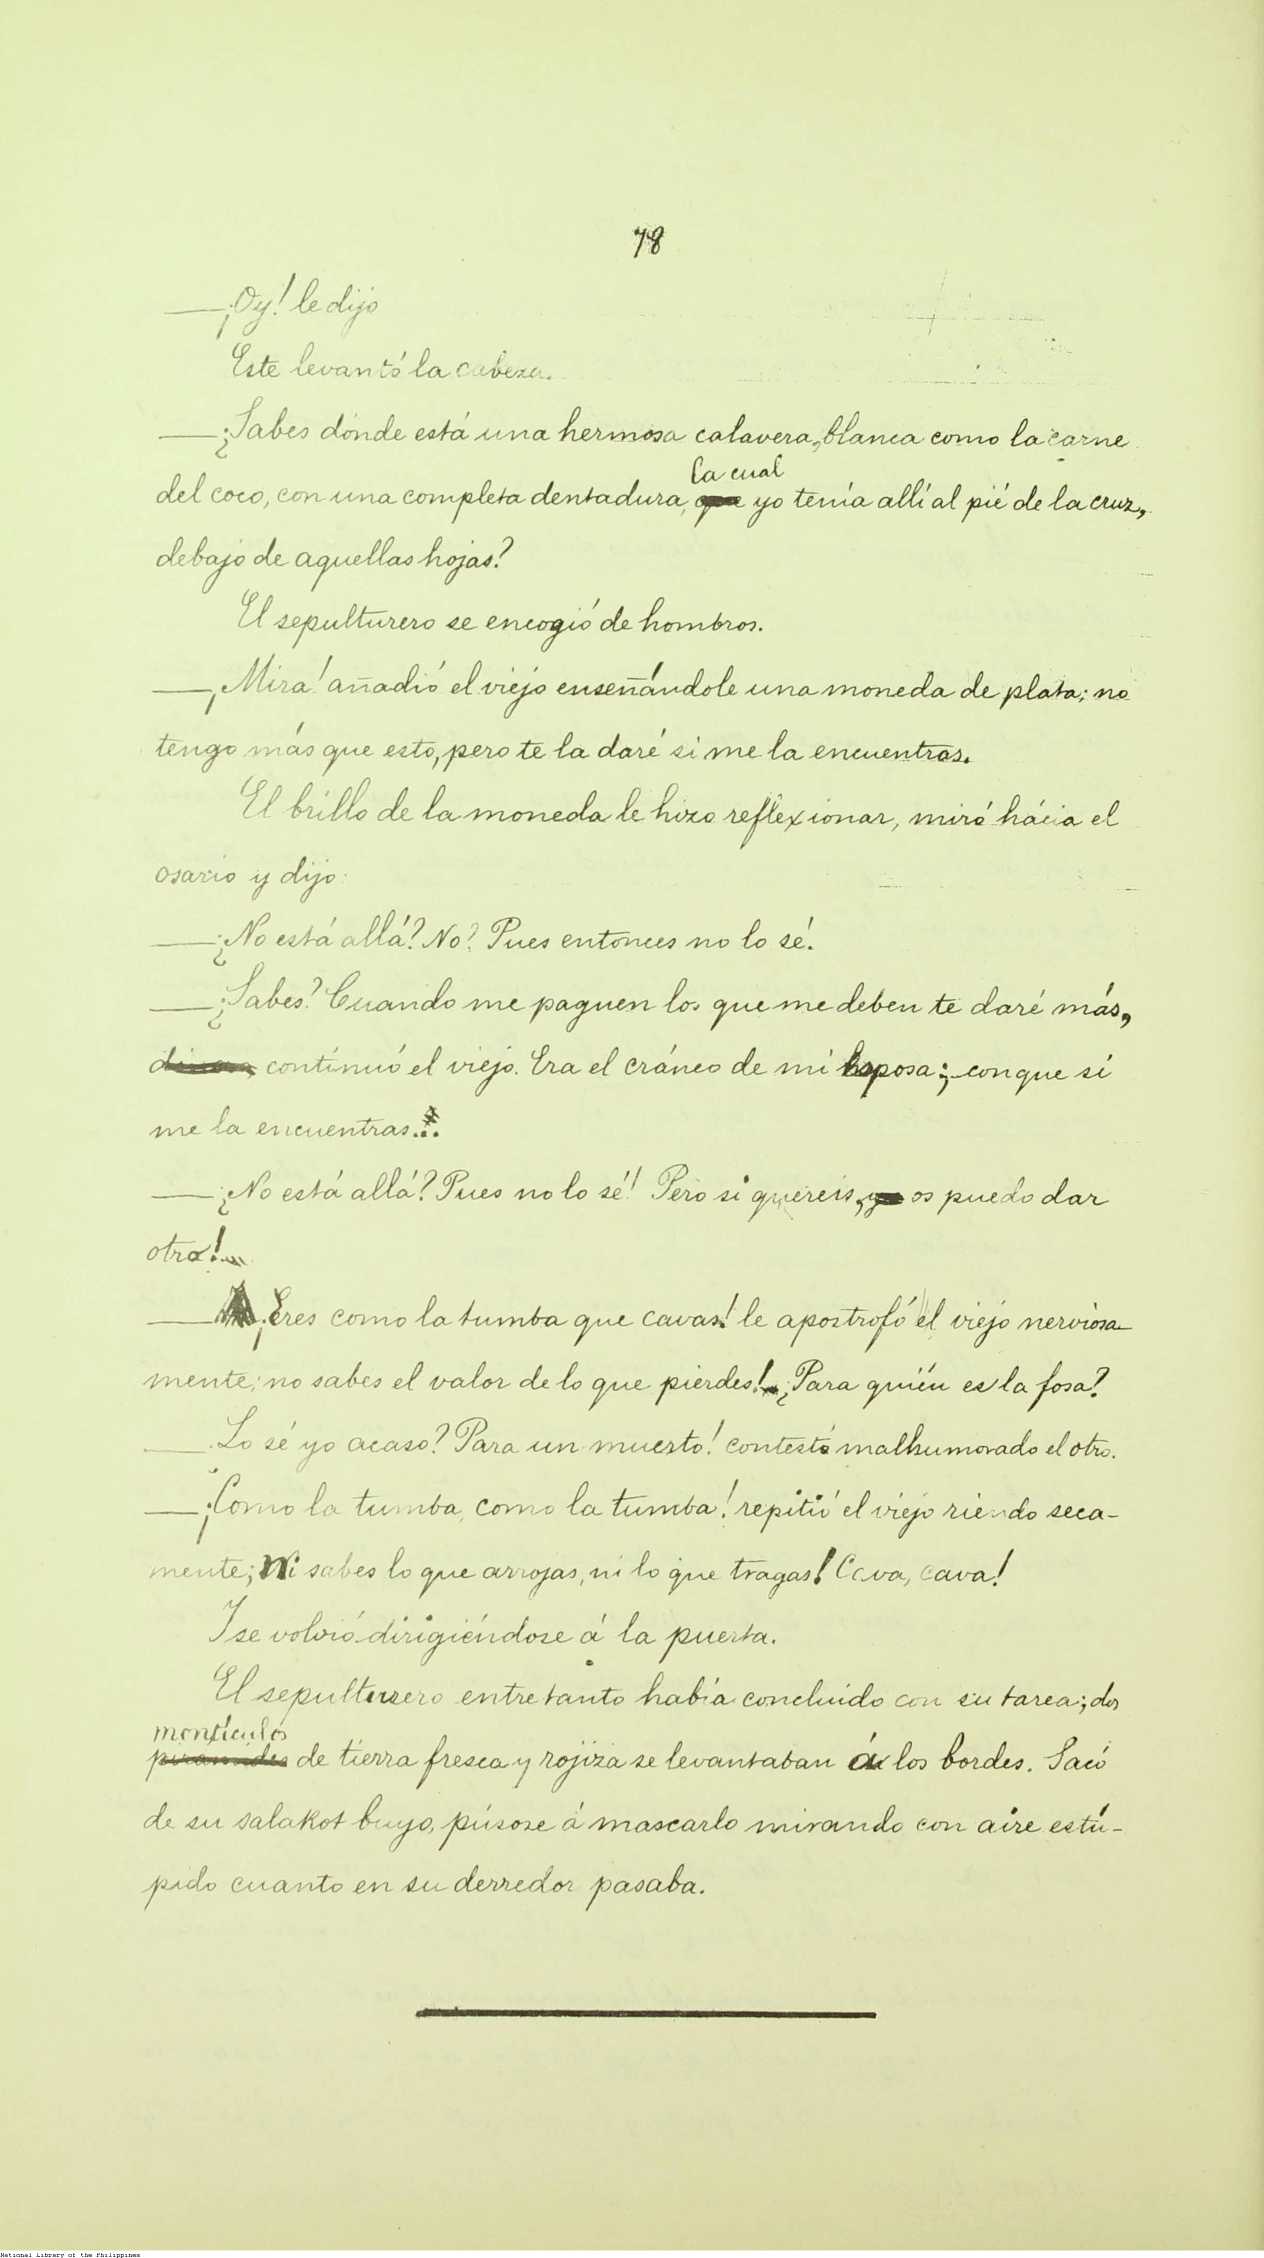 78
—¡Oy! le dijo
Este levantó la cabeza.
—¿Sabes dónde está una hermosa calavera, blanca como la carne
la cual
del coco, con una completa dentadura, que yo tenía allí al pié de la cruz,
debajo de aquellas hojas?
El sepulturero se encogió de hombros.
—¡Mira! añadió el viejo enseñándole una moneda de plata; no
tengo más que esto, pero te la daré si me la encuentras.
El brillo de la moneda le hizo reflexionar, miró hácia el
osario y dijo:
—¿No está allá? No? Pues entonces no lo sé.
—¿Sabes? Cuando me paguen los que me deben te daré más,
continuó el viejo. Era el cráneo de mi esposa; conque si
me la encuentras...
—¿No está allá? Pues no lo sé! Pero si quereis, yo os puedo dar
otra!
—¡Eres como la tumba que cavas! le apostrofó el viejo nerviosa
mente; no sabes el valor de lo que pierdes! ¿Para quién es la fosa?
—Lo sé yo acaso? Para un muerto! contestó malhumorado el otro.
—¡Como la tumba, como la tumba! repitió el viejo riendo seca-
mente; Ni sabes lo que arrojas, ni lo que tragas! Cava, cava!
I se volvió dirigiéndose á la puerta.
El sepulturero entretanto había concluido con su tarea; dos
montículos
piramides de tierra fresca y rojiza se levantaban á los bordes. Sacó
de su salakot buyo, púsose á mascarlo mirando con aire estú-
pido cuanto en su derredor pasaba.
National Library of the Philippines